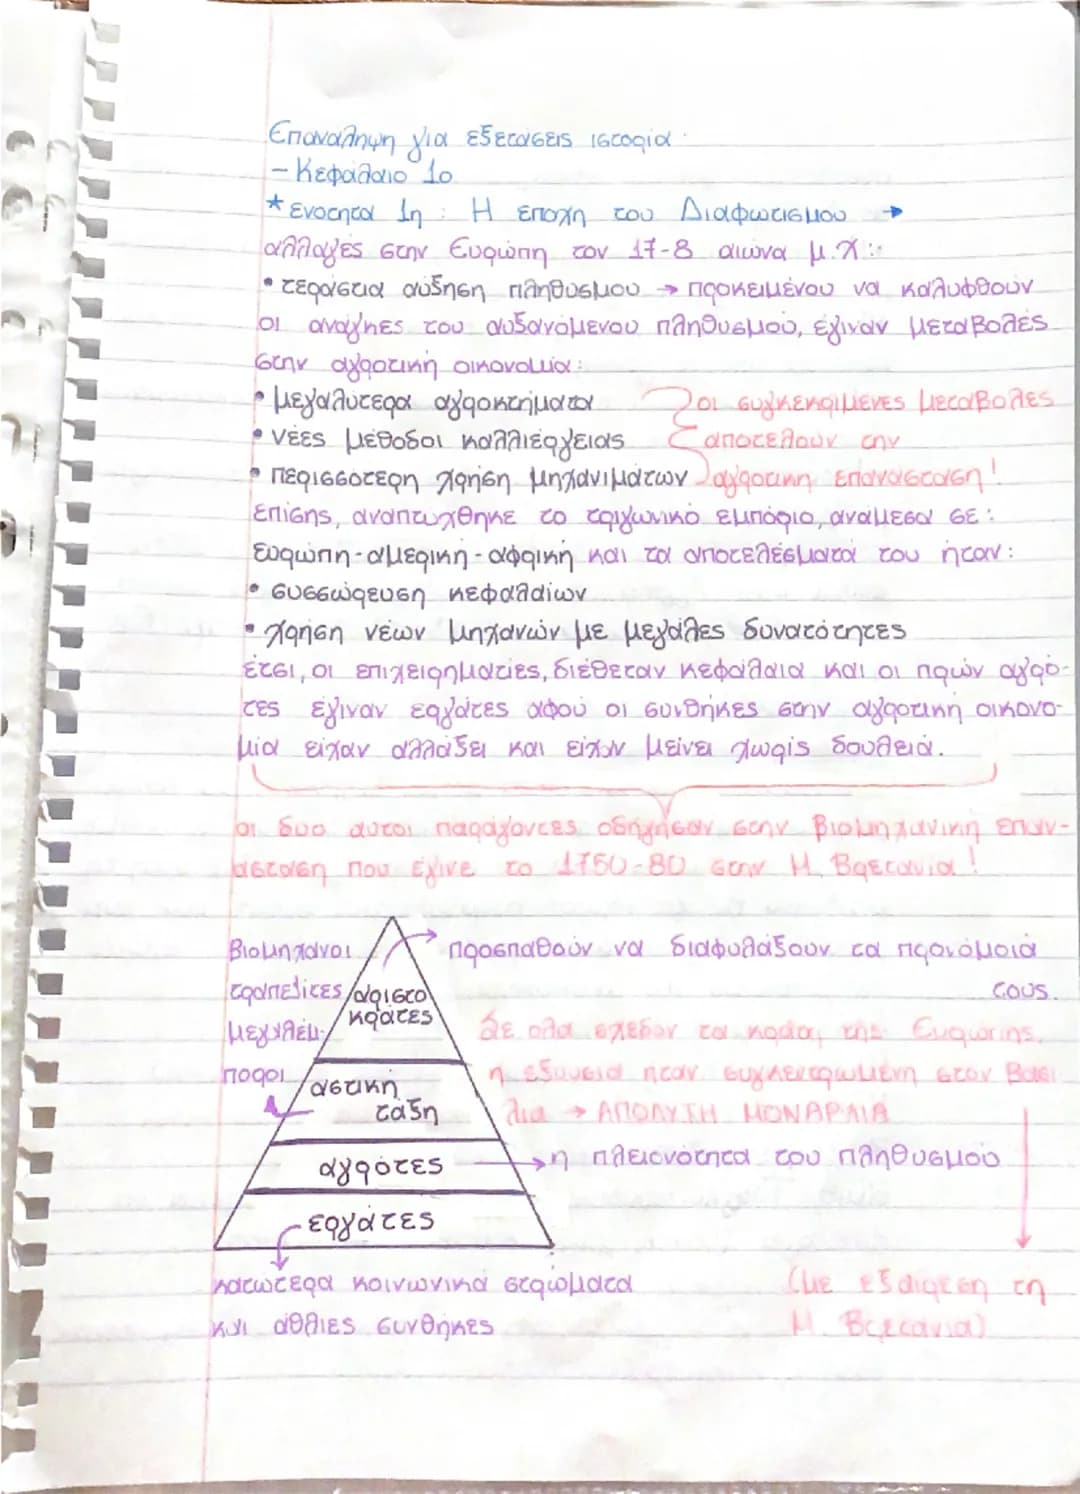 Επανάληψη για εξετάσεις ιστορία
- Κεφάλαιο 1ο
* Ενότητα 1η : Η εποχή του Διαφωτισμού →
αλλαγές στην Ευρώπη τον 17-8 αιώνα μ.Χ.:
• τεράστια αύξηση πληθυσμού → προκειμένου να καλυφθούν
οι ανάγκες του αυξανόμενου πληθυσμού, έγιναν μεταβολές
στην αγροτική οικονομία:
• μεγαλύτερα αγροκτήματα
οι συγκεκριμένες μεταβολές
• νέες μέθοδοι καλλιέργειας
αποτελούν την
• περισσότερη χρήση μηχανιμάτων
αγροτικη επανάσταση!
Επίσης, αναπτυχθηκε το τριγωνικό εμπόριο, ανάμεσα σε:
Ευρώπη-αμερική-αφρική και τα αποτελέσματα του ήταν:
• συσσώρευση κεφαλαίων
• χρήση νέων μηχανών με μεγάλες δυνατότητες
έτσι, οι επιχειρηματίες, διέθεταν κεφάλαια και οι πρών αγρό-
τες έγιναν εργάτες αφού οι συνθήκες στην αγροτική οικονο-
μία είχαν αλλάξει και είχαν μείνει χωρίς δουλειά.
οι δυο αυτοι παράγοντες οδήγησαν στην βιομηχανική επαν-
άσταση που έγινε το 1750-80 στην Μ. Βρετανία!
Βιομηχανοι
προσπαθούν να διαφυλάξουν τα προνόμοιά
τραπεζίτες
αριστο
τους.
μεγαλέμ-
κράτες
Σε ολα σχεδον τα κράτη της Ευρώπης,
ποροι
η εξουσία ηταν συγκεντρωμένη στον βασι
αστική
τάξη
λια → ΑΠΟΛΥΤΗ ΜΟΝΑΡΧΙΑ
αγρότες
η πλειονότητα του πληθυσμού
εργάτες
κατώτερα κοινωνικά στρώματα
(με εξαίρεση τη
και άθλιες συνθήκες
Μ. Βρετανία)